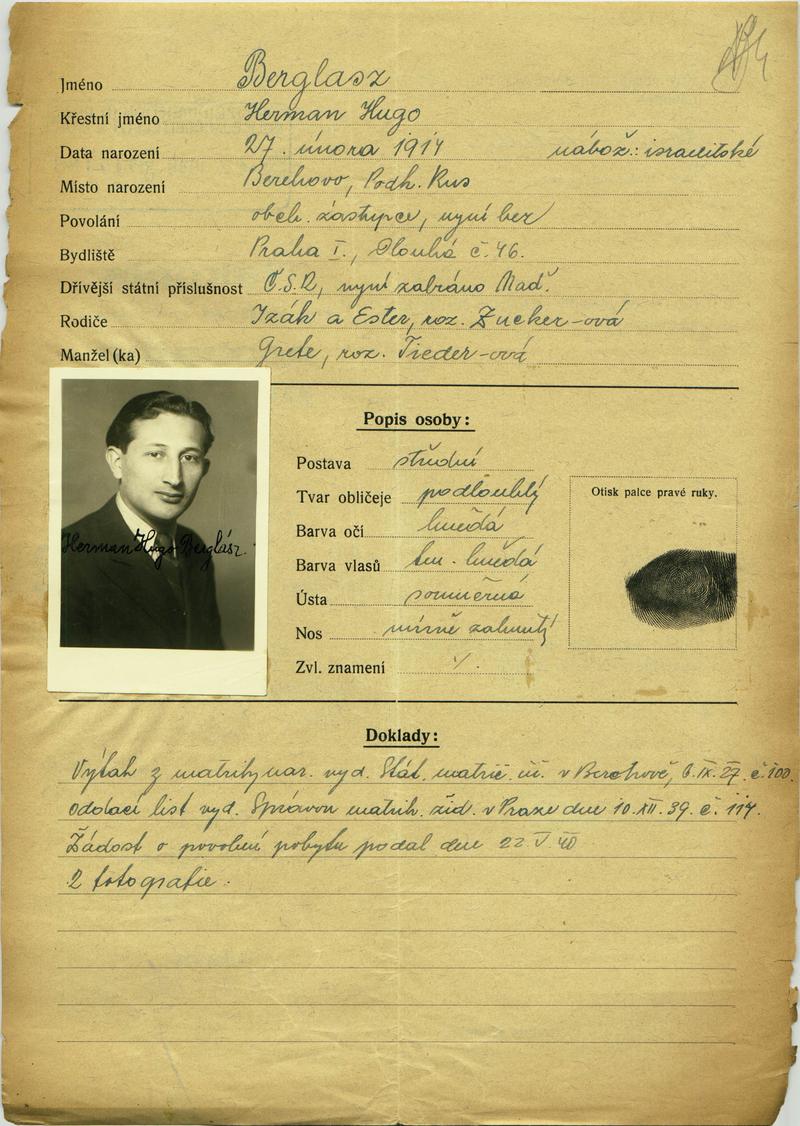 Jméno Berglasz
Křestní jméno Herman Hugo
Data narození 27. února 1914 nábož.: israelitské
Místo narození Berehovo, Podk. Rus
Povolání obch. zástupce, nyní bez
Bydliště Praha I., Dlouhá č. 46.
Dřívější státní příslušnost Č.S.R, nyní zabráno Maď.
Rodiče Izák a Ester, roz. Zucker-ová
Manžel (ka) Grete, roz. Tieder-ová
Popis osoby:
Postava střední
Tvar obličeje podlouhlý
Barva očí hnědá
Barva vlasů tm. hnědá
Ústa souměrná
Nos mírně zahnutý
Zvl. znamení ./.
Otisk palce pravé ruky.
Herman Hugo Berglász.
Doklady:
Výtah z matriky nar. vyd. Stát. matrič. úř. v Berehově, 6.IX.27. č. 100.
odd­ací list vyd. Správou matrik. žid. v Praze dne 10.XII.39. č. 117.
Žádost o povolení pobytu podal dne 22 V. 40
2 fotografie.